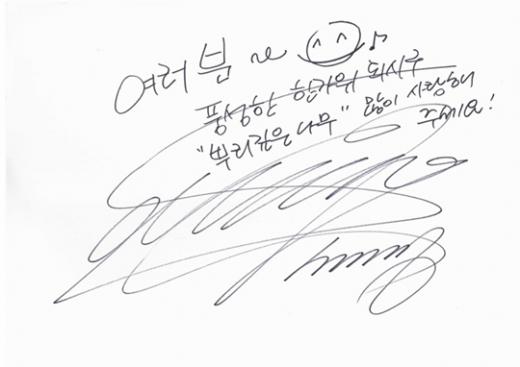 여러분 ~ ^^ ♪
풍성한 한가위 되시구
"뿌리깊은나무" 많이 사랑해
주세요!